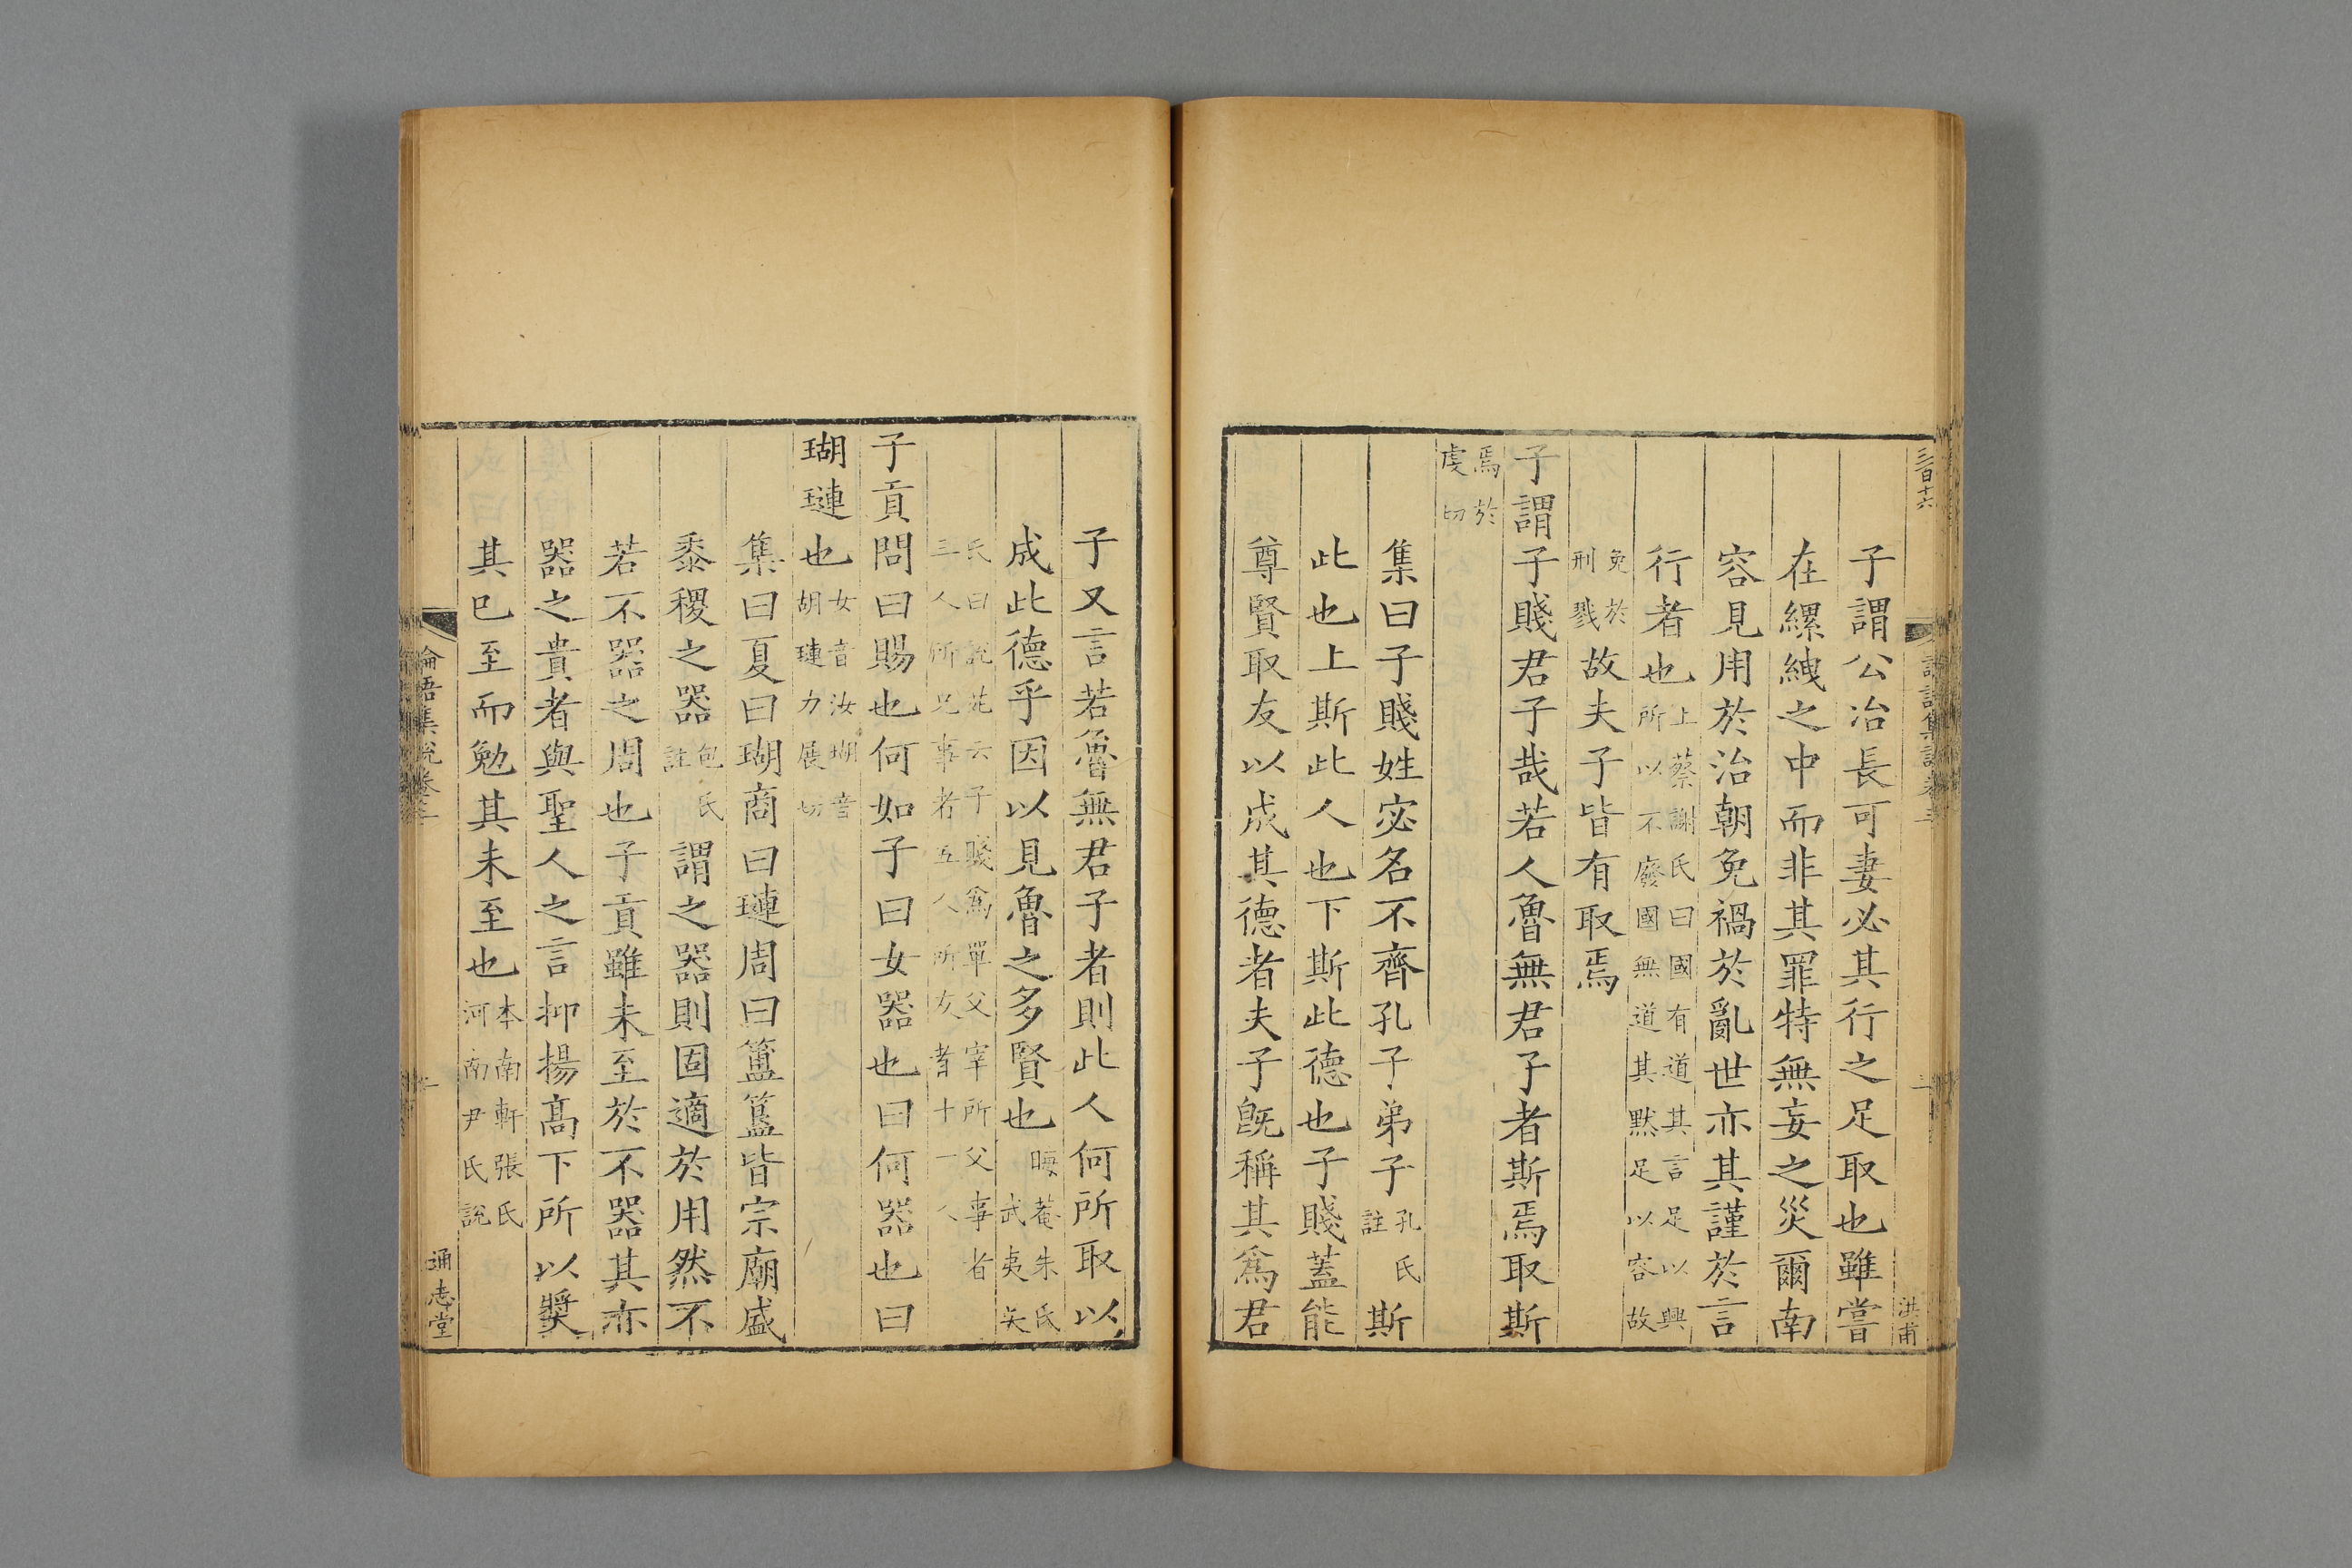 三百十六
洪甫
子謂公冶長可妻必其行之足取也雖嘗
在縲絏之中而非其罪特無妄之災爾南
容見用於治朝免禍於亂世亦其謹於言
行者也上蔡謝氏曰國有道其言足以興
所以不廢國無道其默足以容故
免於
刑戮故夫子皆有取焉
子謂子賤君子哉若人魯無君子者斯焉取斯
焉於
虔切
集曰子賤姓宓名不齊孔子弟子孔氏
註斯
此也上斯此人也下斯此德也子賤蓋能
尊賢取友以成其德者夫子旣稱其爲君
子又言若魯無君子者則此人何所取以
成此德乎因以見魯之多賢也晦菴朱氏
武夷吳
氏曰說苑云子賤爲單父宰所父事者
三人所兄事者五人所友者十一人
子貢問曰賜也何如子曰女器也曰何器也曰
瑚璉也女音汝瑚音
胡璉力展切
集曰夏曰瑚商曰璉周曰簠簋皆宗廟盛
黍稷之器包氏
註謂之器則固適於用然不
若不器之周也子貢雖未至於不器其亦
器之貴者與聖人之言抑揚高下所以奬
其已至而勉其未至也本南軒張氏
河南尹氏說
論語集說卷三
二
通志堂